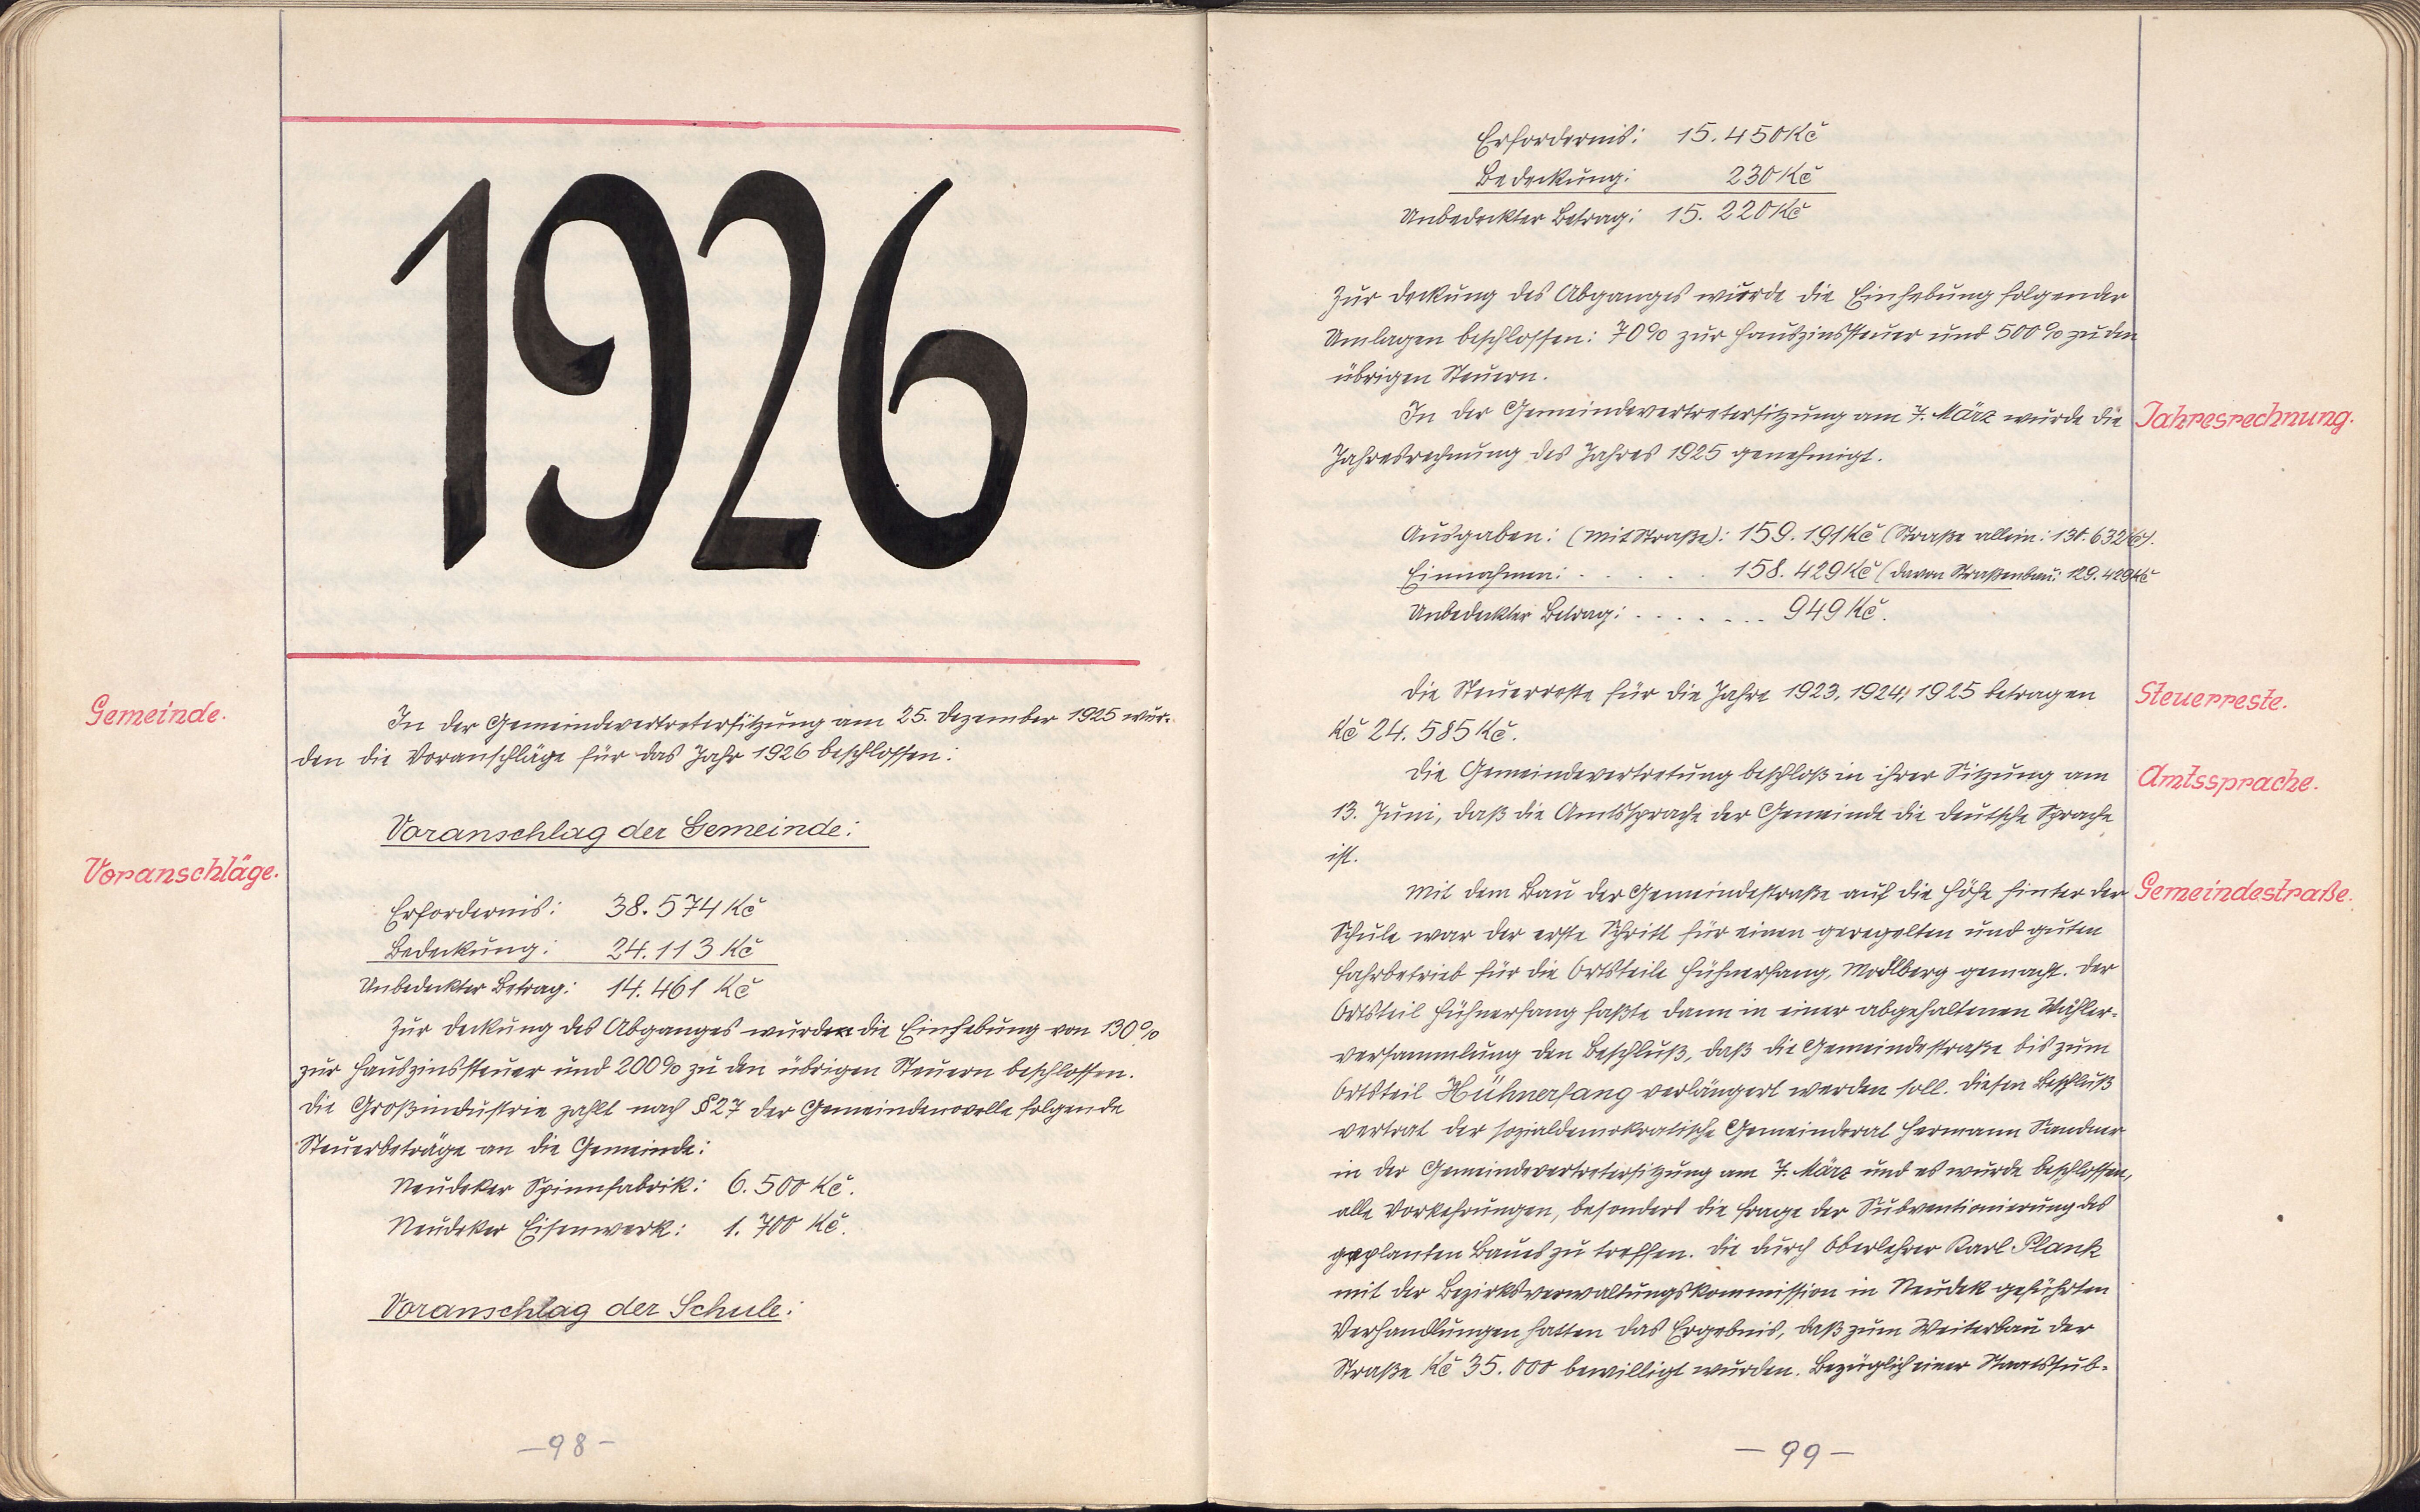 1926
Gemeinde.
In der Gemeindevertretersitzung am 25. Dezember 1925 wur-
den die Voranschläge für das Jahr 1926 beschlossen:
Voranschlag der Gemeinde:
Voranschläge.
Erfordernis: 38.574 Kč
Bedeckung: 24.113 Kč
Unbedeckter Betrag: 14.461 Kč
Zur Deckung des Abganges wurden die Einhebung von 130%
zur Hauszinssteuer und 200% zu den übrigen Steuern beschlossen.
Die Großindustrie zahlt nach § 27 der Gemeindenovelle folgende
Steuerbeträge an die Gemeinde:
Neudeker Spinnfabrik: 6.500 Kč.
Neudeker Eisenwerk: 1.700 Kč.
Voranschlag der Schule:
-98-
Erfordernis: 15.450 Kč
Bedeckung: 230 Kč
Unbedeckter Betrag: 15.220 Kč
Zur Deckung des Abganges wurde die Einhebung folgender
Umlagen beschlossen: 70% zur Hauszinssteuer und 500% zu den
übrigen Steuern.
In der Gemeindevertretersitzung am 7. März wurde die
Jahresrechnung.
Jahresrechnung des Jahres 1925 genehmigt.
Ausgaben: (mit Straße): 159.191 Kč (Straße allein: 130.632 Kč).
Einnahmen: . . . . . 158.429 Kč (davon Straßenbau: 129.429 Kč
Unbedeckter Betrag: . . . . . . . 949 Kč.
Die Steuerreste für die Jahre 1923, 1924, 1925 betragen
Steuerreste.
Kč 24.585 Kč.
Die Gemeindevertretung beschloß in ihrer Sitzung am
Amtssprache.
13. Juni, daß die Amtssprache der Gemeinde die deutsche Sprache
ist.
Mit dem Bau der Gemeindestraße auf die Höhe hinter der
Gemeindestraße.
Schule war der erste Schritt für einen geregelten und guten
Fahrbetrieb für die Ortsteile Hühnerfang, Modlberg gemacht. Der
Ortsteil Hühnerfang faßte dann in einer abgehaltenen Wähler-
versammlung den Beschluß, daß die Gemeindestraße bis zum
Ortsteil Hühnerfang verlängert werden soll. Diesen Beschluß
vertrat der sozialdemokratische Gemeinderat Hermann Sandner
in der Gemeindevertretersitzung am 7. März und es wurde beschlossen,
alle Vorkehrungen, besonders die Frage der Subventionierung des
geplanten Baues zu treffen. Die durch Oberlehrer Karl Plank
mit der Bezirksverwaltungskommission in Neudek geführten
Verhandlungen hatten das Ergebnis, daß zum Weiterbau der
Straße Kč 35.000 bewilligt wurden. Bezüglich einer Staatssub-
-99-